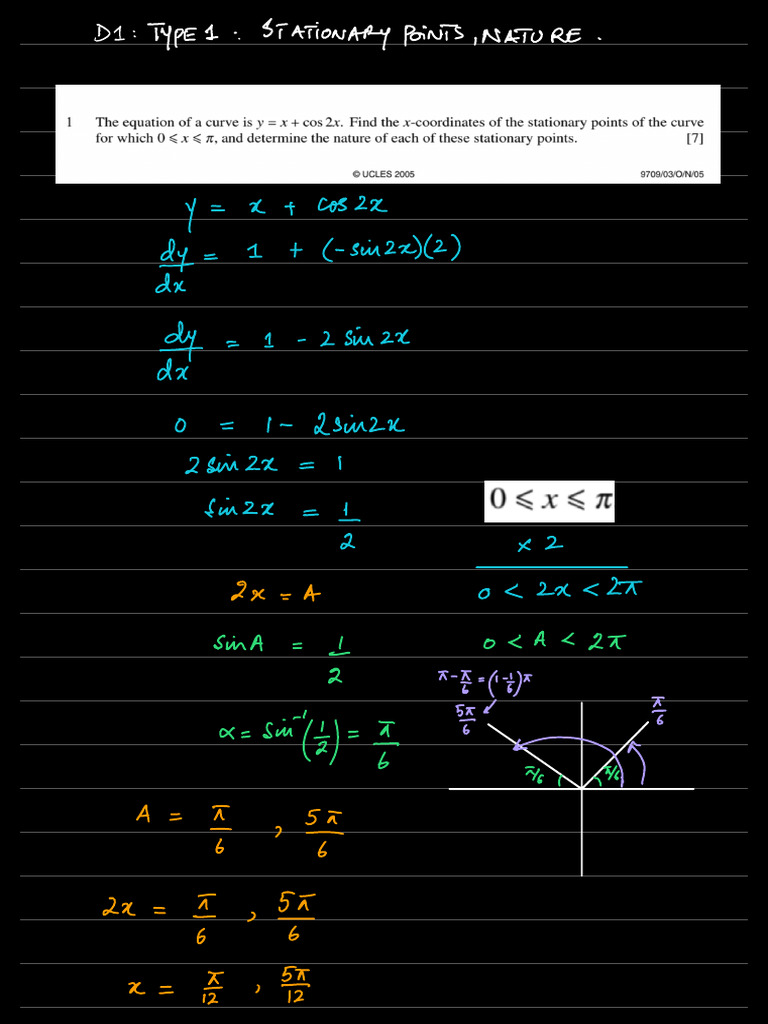 D1: TYPE 1 : STATIONARY POINTS, NATURE.
1 The equation of a curve is y = x + cos 2x. Find the x-coordinates of the stationary points of the curve
for which 0 ⩽ x ⩽ π, and determine the nature of each of these stationary points. [7]
© UCLES 2005 9709/03/O/N/05
y = x + cos 2x
dy/dx = 1 + (-sin 2x)(2)
dy/dx = 1 - 2 sin 2x
0 = 1 - 2 sin 2x
2 sin 2x = 1
sin 2x = 1/2
0 ⩽ x ⩽ π
× 2
0 < 2x < 2π
2x = A
sin A = 1/2
0 < A < 2π
α = sin⁻¹(1/2) = π/6
π - π/6 = (1 - 1/6)π
5π/6
π/6
π/6
π/6
A = π/6 , 5π/6
2x = π/6 , 5π/6
x = π/12 , 5π/12